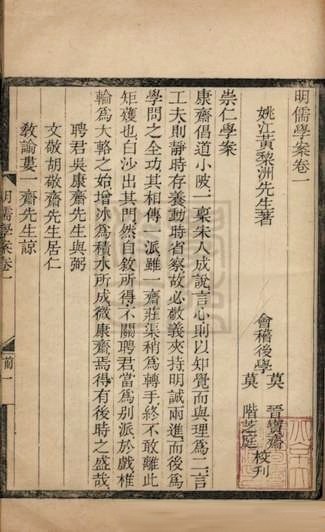 明儒學案卷一
姚江黃梨洲先生著
會稽後學
莫晉寶齋
莫階芝庭
校刊
崇仁學案
康齋倡道小陂一稟宋人成說言心則以知覺而與理爲二言
工夫則靜時存養動時省察故必敬義夾持明誠兩進而後爲
學問之全功其相傳一派雖一齋莊渠稍爲轉手終不敢離此
矩矱也白沙出其門然自敘所得不關聘君當爲別派於戲椎
輪爲大輅之始增冰爲積水所成微康齋焉得有後時之盛哉
聘君吳康齋先生與弼
文敬胡敬齋先生居仁
敎諭婁一齋先生諒
明儒學案卷一
前一